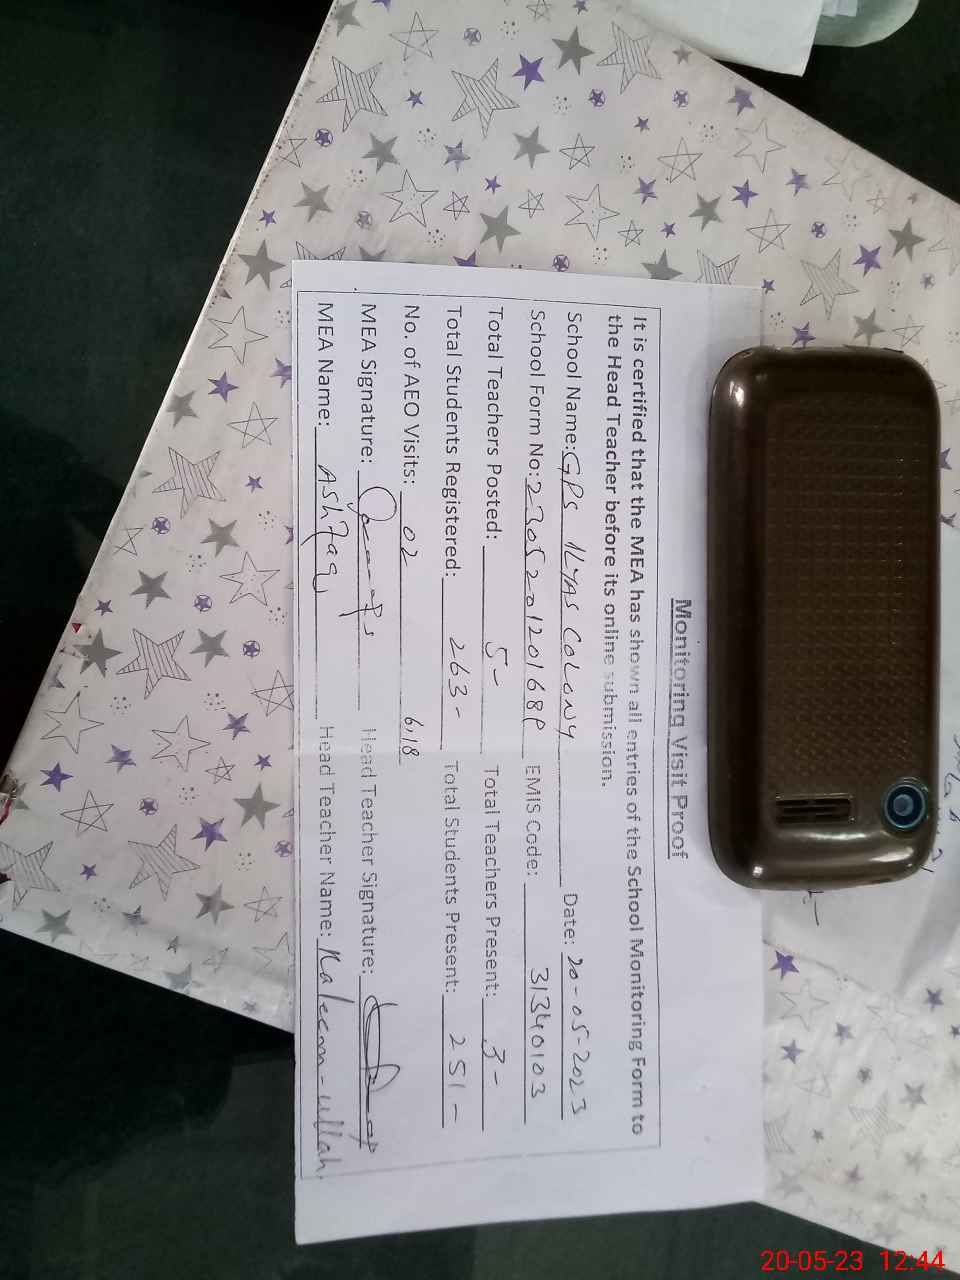 Monitoring Visit Proof
It is certified that the MEA has shown all entries of the School Monitoring Form to
the Head Teacher before its online submission.
School Name: GPS ILYAS COLONY Date: 20-05-2023
School Form No: 2305201201688 EMIS Code: 31340103
Total Teachers Posted: 5- Total Teachers Present: 3-
Total Students Registered: 263- Total Students Present: 251-
No. of AEO Visits: 02 6,18
MEA Signature: Head Teacher Signature:
MEA Name: Ashfaq Head Teacher Name: Kaleem-ullah
20-05-23 12:44